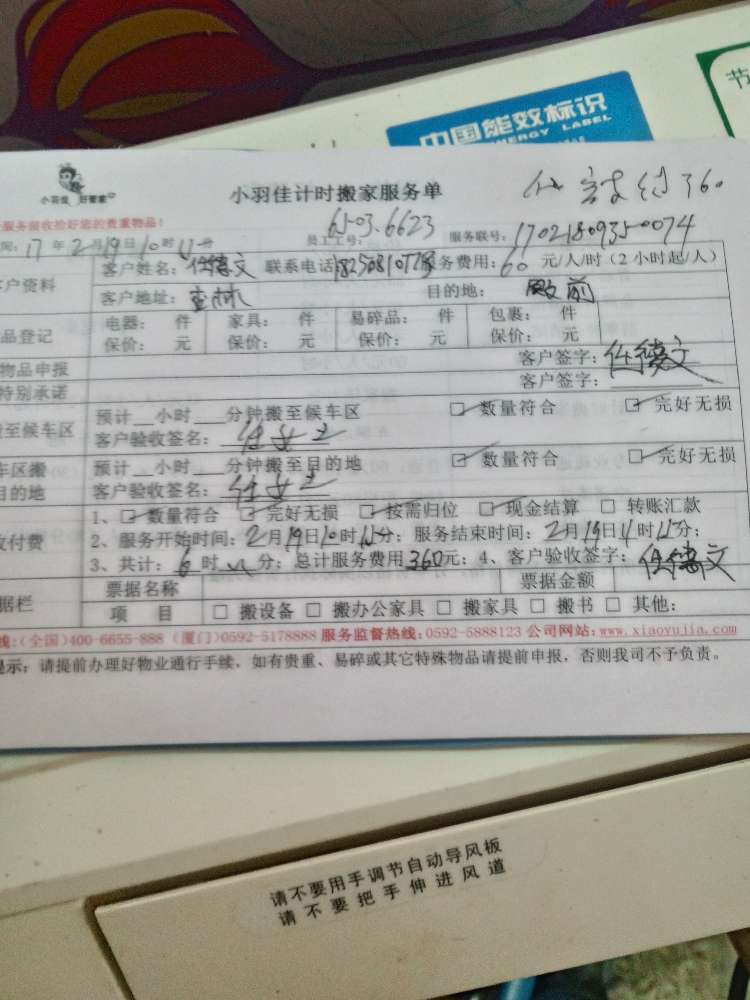 节
中国能效标识
ENERGY LABEL
小羽佳 好管家
小羽佳计时搬家服务单
支付360
服务前收检好您的贵重物品!
员工工号: 65-03.6623 服务联号: 1702180935-0074
间: 17年2月19日10时 分
客户资料 客户姓名: 任德文 联系电话 服务费用: 60 元/人/时(2小时起/人)
客户地址: 杏林 目的地: 殿前
品登记 电器: 件 家具: 件 易碎品: 件 包裹: 件
保价: 元 保价: 元 保价: 元 保价: 元
物品申报 客户签字: 任德文
特别承诺 客户签字:
至候车区 预计__小时__分钟搬至候车区 数量符合 完好无损
客户验收签名: 任女士
车区搬 预计__小时__分钟搬至目的地 数量符合 完好无损
目的地 客户验收签名: 任女士
1、数量符合 完好无损 按需归位 现金结算 转账汇款
收付费 2、服务开始时间: 2月19日10时 分; 服务结束时间: 2月19日4时 分;
3、共计: 6时 分; 总计服务费用360元; 4、客户验收签字: 任德文
据栏 票据名称 票据金额
项 目 搬设备 搬办公家具 搬家具 搬书 其他:
线:(全国)400-6655-888 (厦门)0592-5178888 服务监督热线:0592-5888123 公司网站:www.xiaoyujia.com
提示: 请提前办理好物业通行手续, 如有贵重、易碎或其它特殊物品请提前申报, 否则我司不予负责。
请不要用手调节自动导风板
请不要把手伸进风道